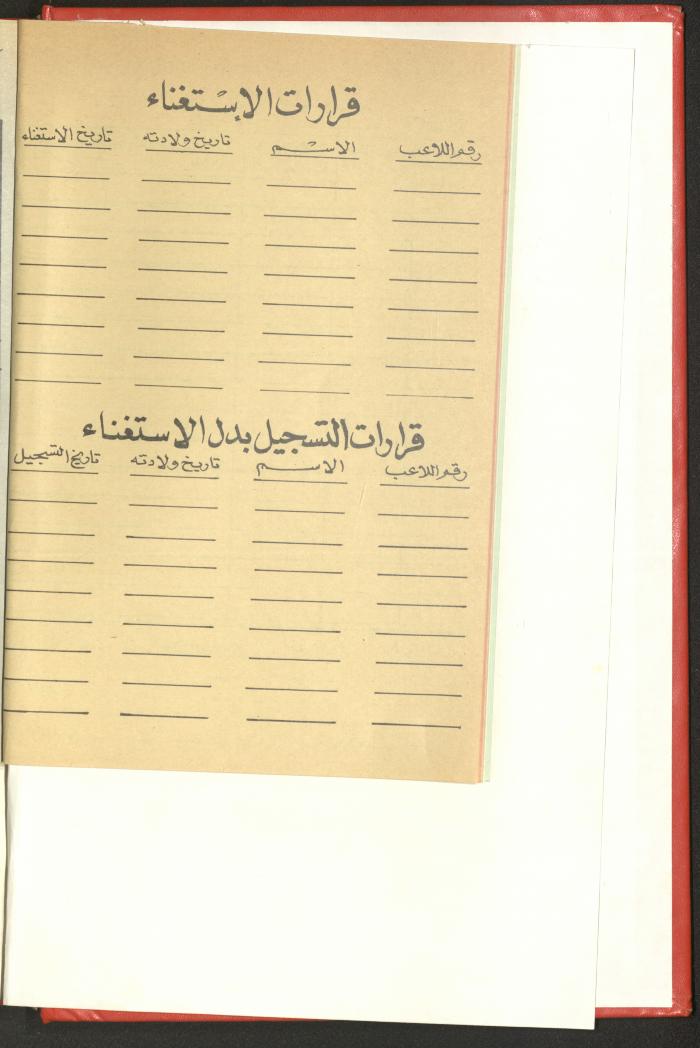 قرارات الاستغناء
رقم اللاعب الاسم تاريخ ولادته تاريخ الاستغناء
قرارات التسجيل بدل الاستغناء
رقم اللاعب الاسم تاريخ ولادته تاريخ التسجيل